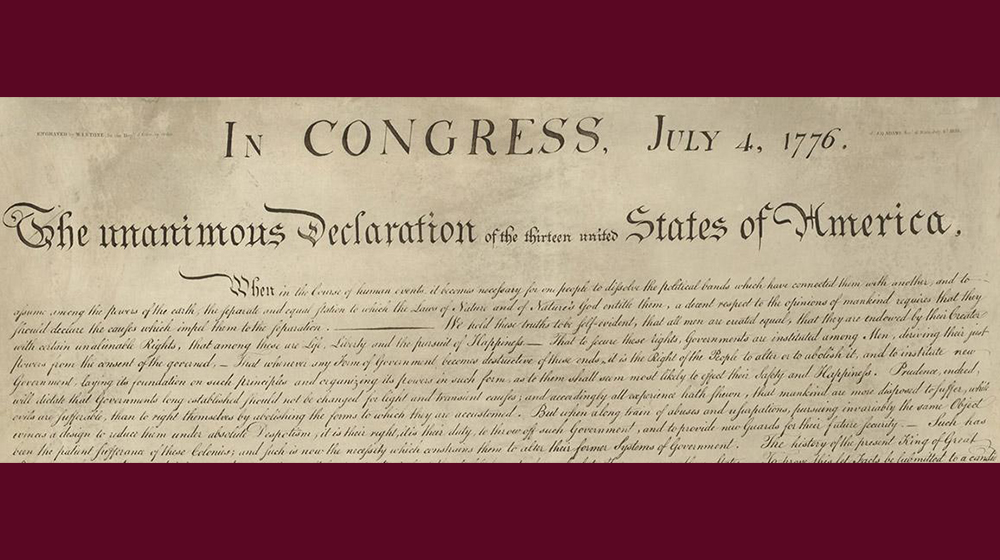 ENGRAVED by W.I.STONE, for the Dept. of State, by order
of J. Q. ADAMS, Sec. of State, July 4th 1823.
IN CONGRESS, JULY 4, 1776.
The unanimous Declaration of the thirteen united States of America,
When in the Course of human events, it becomes necessary for one people to dissolve the political bands which have connected them with another, and to
assume among the powers of the earth, the separate and equal station to which the Laws of Nature and of Nature's God entitle them, a decent respect to the opinions of mankind requires that they
should declare the causes which impel them to the separation. ——— We hold these truths to be self-evident, that all men are created equal, that they are endowed by their Creator
with certain unalienable Rights, that among these are Life, Liberty and the pursuit of Happiness.— That to secure these rights, Governments are instituted among Men, deriving their just
powers from the consent of the governed,— That whenever any Form of Government becomes destructive of these ends, it is the Right of the People to alter or to abolish it, and to institute new
Government, laying its foundation on such principles and organizing its powers in such form, as to them shall seem most likely to effect their Safety and Happiness. Prudence, indeed,
will dictate that Governments long established should not be changed for light and transient causes; and accordingly all experience hath shewn, that mankind are more disposed to suffer, while
evils are sufferable, than to right themselves by abolishing the forms to which they are accustomed. But when a long train of abuses and usurpations, pursuing invariably the same Object
evinces a design to reduce them under absolute Despotism, it is their right, it is their duty, to throw off such Government, and to provide new Guards for their future security.— Such has
been the patient sufferance of these Colonies; and such is now the necessity which constrains them to alter their former Systems of Government. The history of the present King of Great
States. To prove this, let Facts be submitted to a candid